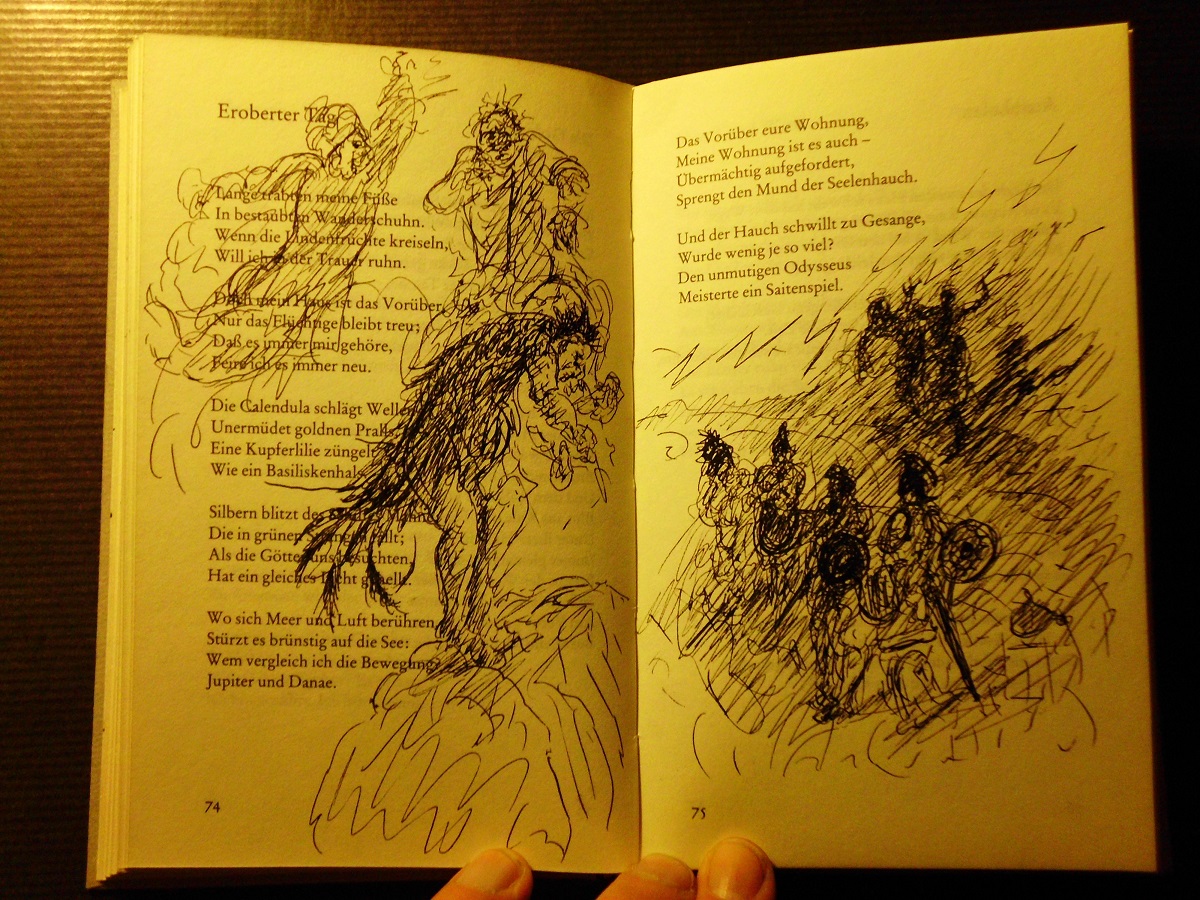 Eroberter Tag
Lange trabten meine Füße
In bestaubten Wanderschuhn.
Wenn die Lindenfrüchte kreiseln,
Will ich in der Trauer ruhn.
Doch mein Haus ist das Vorüber,
Nur das Flüchtige bleibt treu;
Daß es immer mir gehöre,
Feire ich es immer neu.
Die Calendula schlägt Wellen
Unermüdet goldnen Pralls,
Eine Kupferlilie züngelt
Wie ein Basiliskenhals.
Silbern blitzt des
Die in grünen Strängen fällt;
Als die Götter uns besuchten,
Hat ein gleiches Licht gehellt.
Wo sich Meer und Luft berühren,
Stürzt es brünstig auf die See:
Wem vergleich ich die Bewegung?
Jupiter und Danae.
74
Das Vorüber eure Wohnung,
Meine Wohnung ist es auch –
Übermächtig aufgefordert,
Sprengt den Mund der Seelenhauch.
Und der Hauch schwillt zu Gesange,
Wurde wenig je so viel?
Den unmutigen Odysseus
Meisterte ein Saitenspiel.
75